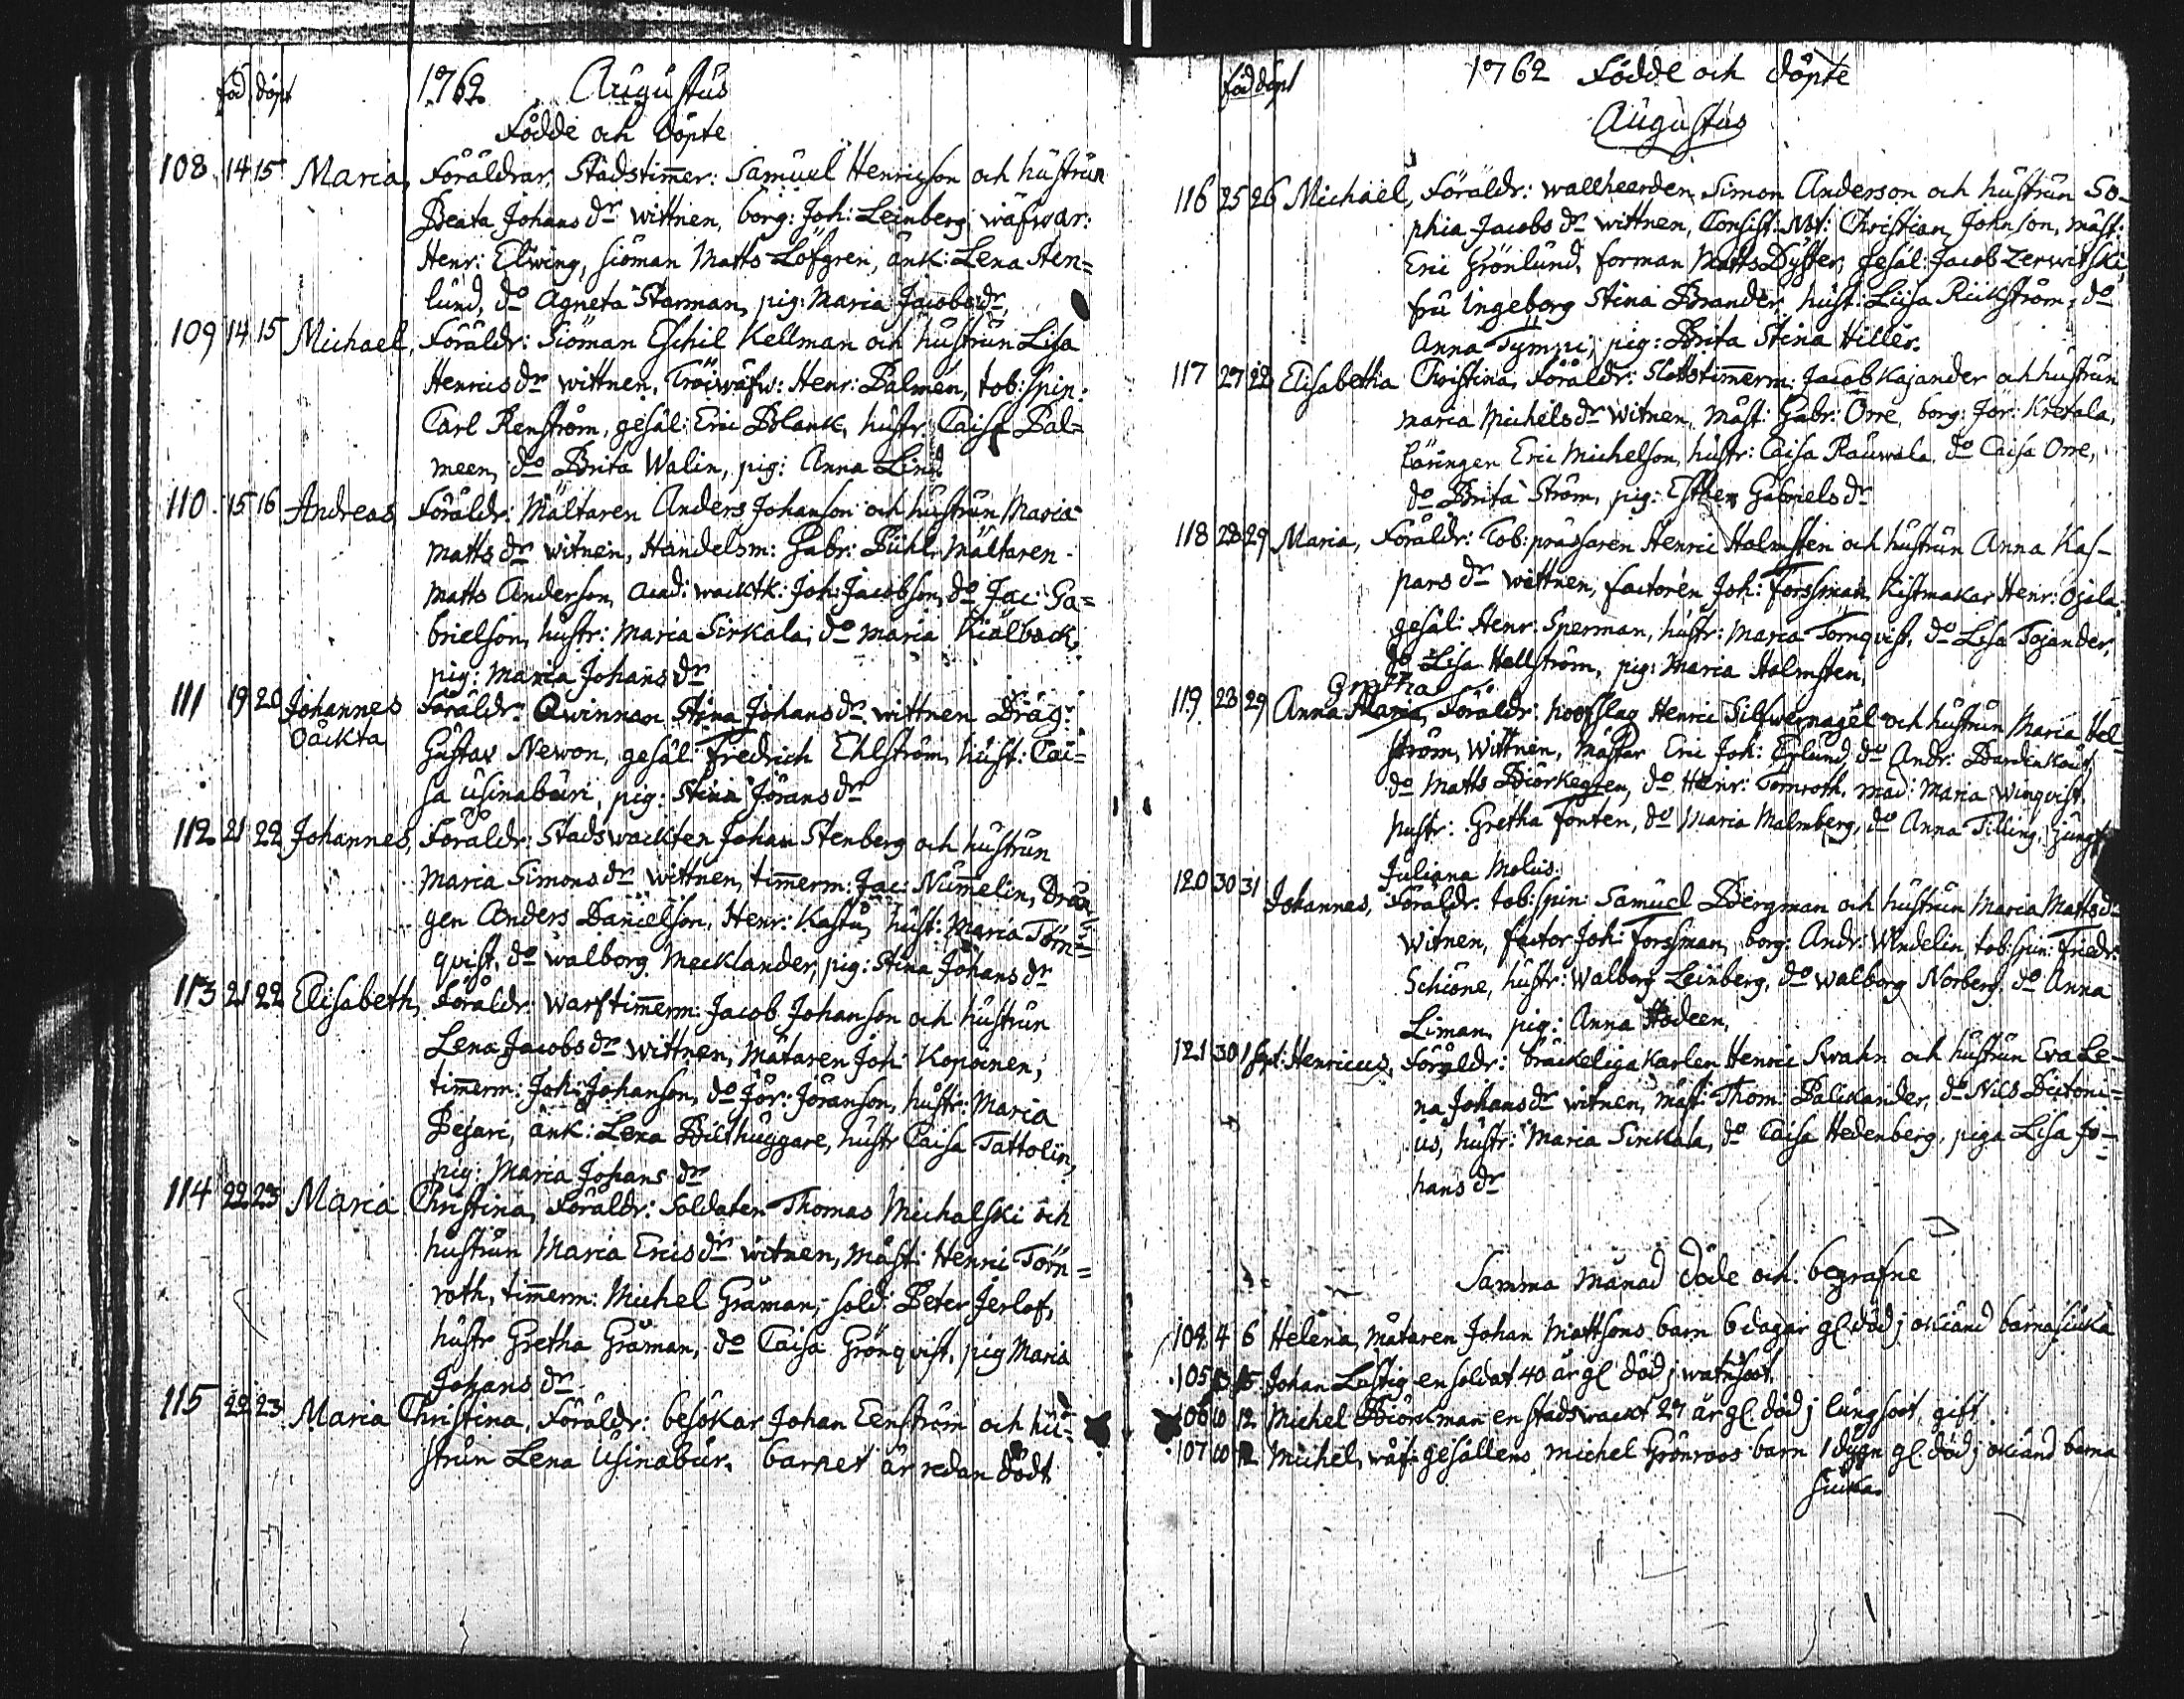 föd döpt 1762 Augustus
Födde och döpte
108 14 15 Maria, Föräldrar, Stadstimer: Samuel Henricson och hustrun
Beata Johans dr wittnen, borg: Joh: Leinberg, wäfwar:
Henr: Elwing, siöman Matts Löfgren, änk: Lena Sten=
lund, do Agneta Starman, pig: Maria Jacobs dr
109 14 15 Michael, Föräldr: Siöman Eschil Kellman och hustrun Lisa
Henrics dr wittnen, Tröiwäfw: Henr: Palmen, tob: spin:
Carl Renström, gesäl: Eric Blank, hustr: Caisa Pal=
meen, do Brita Walin, pig: Anna Lind
110 15 16 Andreas Föräldr: Mältaren Anders Johanson och hustrun Maria
Matts dr witnen, Handelsm: Gabr: Pühl, Mältaren
Matts Anderson, Acad: wacktk: Joh: Jacobson, do Jac: Ga=
brielson, hustr: Maria Sirkala, do Maria Kiälback,
pig: Maria Johans dr
111 19 20 Johannes Föräldr: Qwinnan Stina Johans dr wittnen Dräg:
oäckta Gustav Newon, gesäl: Fredrich Ehlström, hust: Cai=
sa usinaburi, pig: Stina Jörans dr
112 21 22 Johannes, Föräldr: Stadswackten Johan Stenberg och hustrun
Maria Simons dr wittnen, timerm: Jac: Numelin, Drän
gen Anders Danielson, Henr: Kastu, hust: Maria Törn=
qvist, do walborg Mecklander, pig: Stina Johans dr
113 21 22 Elisabeth, Föräldr: Warftimerm: Jacob Johanson och hustrun
Lena Jacobs dr wittnen, Mätaren Joh: Kopoinen,
timerm: Joh: Johanson, do Jör: Jöranson, hustr: Maria
Pejari, änk: Lena Bilthuggare, hustr Caisa Tattolin,
pig: Maria Johans dr
114 22 23 Maria Christina, Föräldr: Soldaten Thomas Michalski och
hustrun Maria Erics dr witnen, Mäst: Henric Törn=
roth, timerm: Michel Gråman, sold: Peter Jerlof,
hustr Gretha Gråman, do Caisa Grönqvist, pig Maria
Johans dr
115 22 23 Maria Christina, Föräldr: besökar Johan Eenström och hu=
strun Lena Usinabur. barnet är redan dödt
föd döpt 1762 Födde och döpte
Augustus
116 25 26 Michael, Föräldr: wallheerden Simon Anderson och hustrun So-
phia Jacobs dr wittnen, Consist: Not: Christian Johnson, mäst:
Eric Grönlund, forman Matts Dyster, gesäl: Jacob Zerwitski,
fru Ingeborg Stina Brander, hust: Lisa Rickström, do
Anna Tympi, pig: Brita Stina Hiller.
117 27 28 Elisabetha Christina, Föräldr: Slottstimerm: Jacob Kajander och hustrun
Maria Michels dr witnen, Mäst: Gabr: Orre, borg: Jör: Kretala,
läringen Eric Michelson, hustr: Caisa Rauwala, do Caisa Orre,
do Brita Ström, pig: Esther Gabriels dr
118 28 29 Maria, Föräldr: Tob: prässaren Henric Holmsten och hustrun Anna Kas-
pars dr wittnen, factoren Joh: Forssman, Kistmakar Henr: Ojala,
gesäl: Henr: Sperman, hustr: Maria Törnqvist, do Lisa Tojander,
do Lisa Hellström, pig: Maria Holmsten,
Gretha
119 28 29 Anna Maria, Föräldr: hoofslag Henric Silfwernagel och hustrun Maria Hel-
ström, Wittnen, Mästar Eric Joh: Erlund, do Andr:
do Matts Biörkegren, do Henr: Törnroth, mad: Maria Winqvist,
hustr: Gretha Fonten, do Maria Malmberg, do Anna Tilling, Jungf
Juliana Molus.
120 30 31 Johannes, Föräldr: tob: spin: Samuel Bergman och hustrun Maria Matts dr
witnen, factor Joh: Forssman, borg: Andr: Windelin, tob: spin: Friedr:
Schiöne, hustr: Walborg Leinberg, do Walborg Norberg, do Anna
Liman, pig: Anna Hodeen,
121 30 1 Sept: Henricus, Föräldr: bräckeliga karlen Henric Swahn och hustrun Eva Le-
na Johans dr witnen, mäst: Thom: Palikander, do Nils Betoni=
us, hustr: Maria Sirckala, do Caisa Hedenberg, piga Lisa Jo-
hans dr
Samma månad döde och begrafne
104 4 6 Helena, Mätaren Johan Mattsons barn 6 dagar gl död j okiänd barnasiuka
105 13 15 Johan Lustig en soldat 40 år gl död j watusoot
106 10 12 Michel Biörkman en stadswackt 27 år gl. död j lungsoot, gift
107 10 12 Michel, wäf: gesällens Michel Grönroos barn 1 dygn gl. död j okiänd barna
siuka.